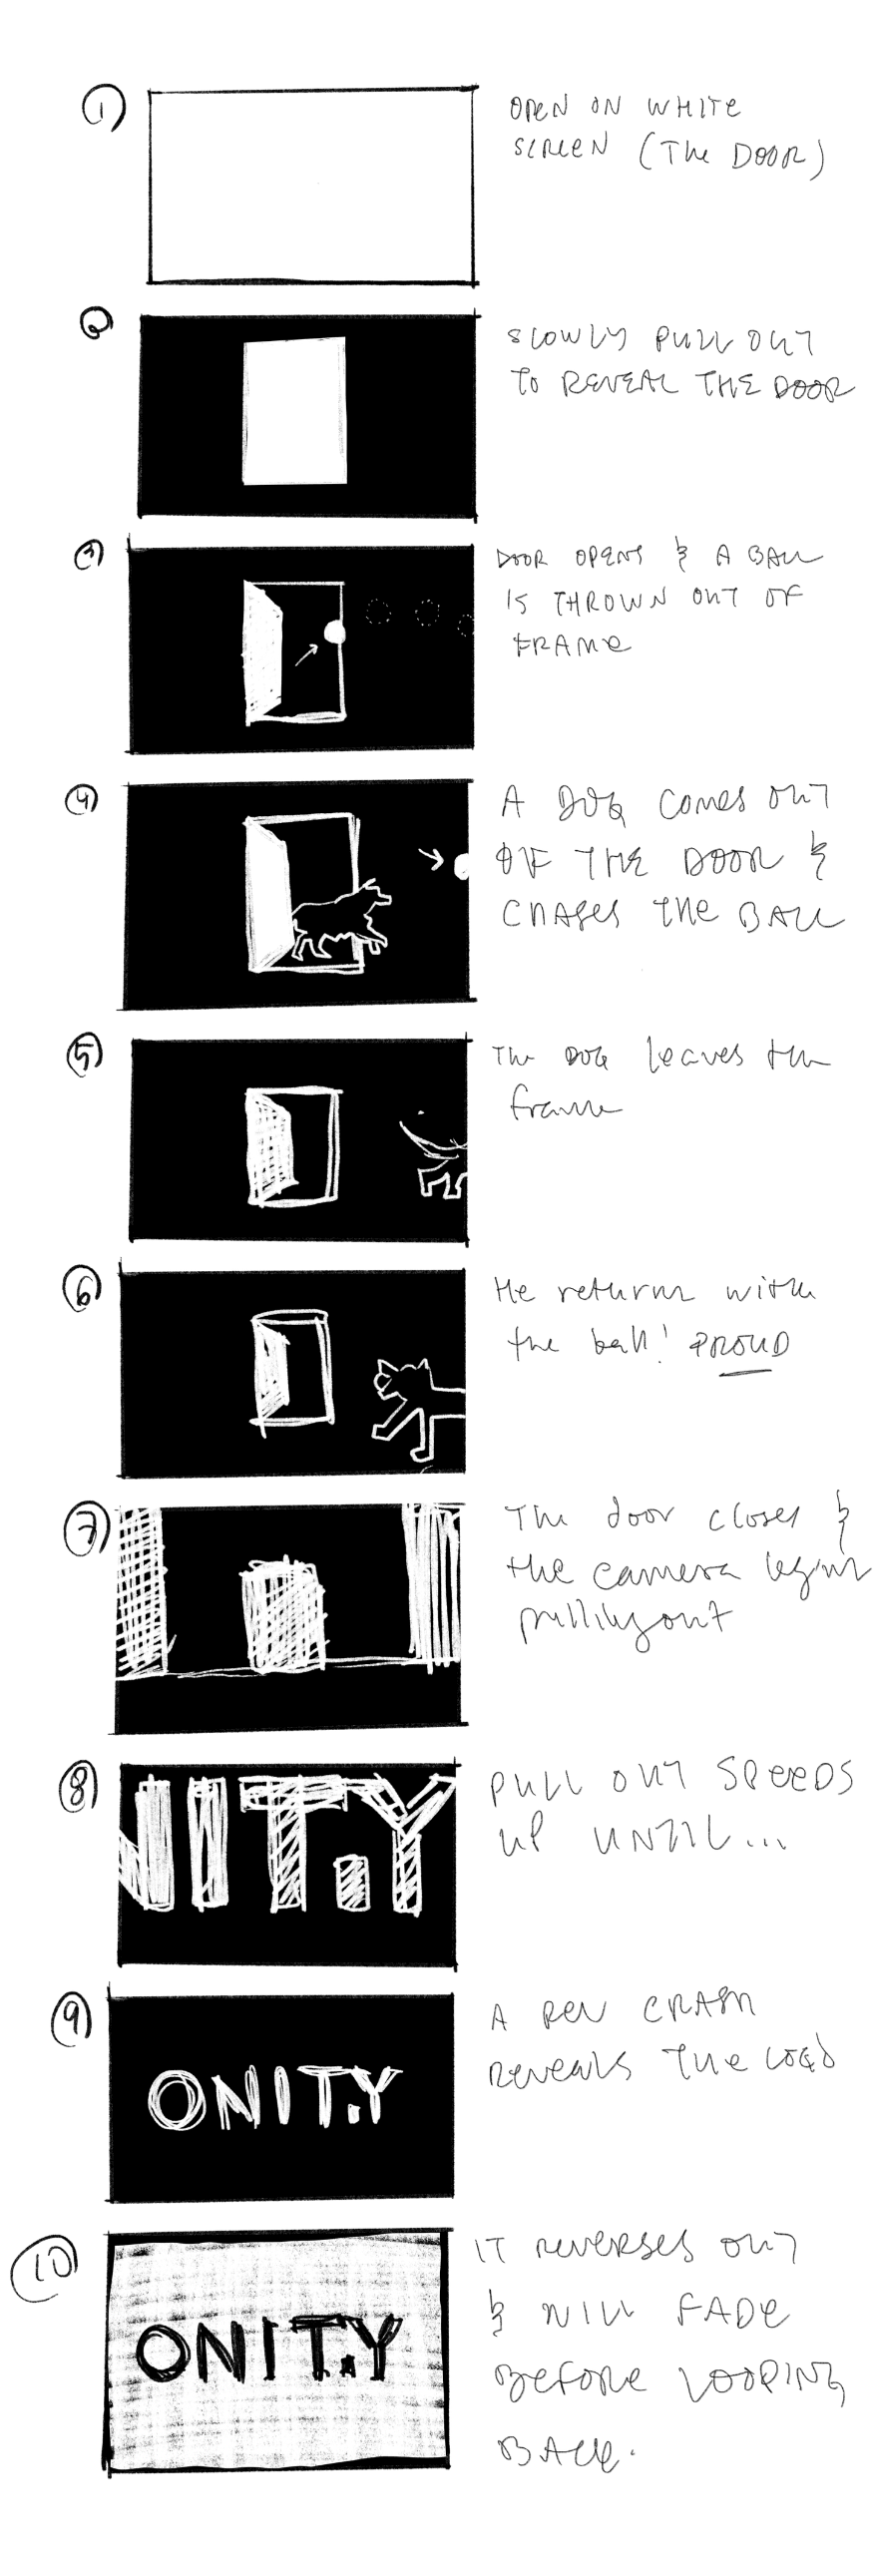 1
OPEN ON WHITE
SCREEN (THE DOOR)
2
SLOWLY PULL OUT
TO REVEAL THE DOOR
3
DOOR OPENS & A BALL
IS THROWN OUT OF
FRAME
4
A DOG COMES OUT
OF THE DOOR &
CHASES THE BALL
5
THE DOG leaves the
frame
6
He returns with
the ball! PROUD
7
The door closes &
the camera begins
pulling out
8
NIT.Y
PULL OUT SPEEDS
UP UNTIL...
9
ONIT.Y
A
REVEALS THE LOGO
10
ONIT.Y
IT REVERSES OUT
& WILL FADE
BEFORE LOOPING
BACK.